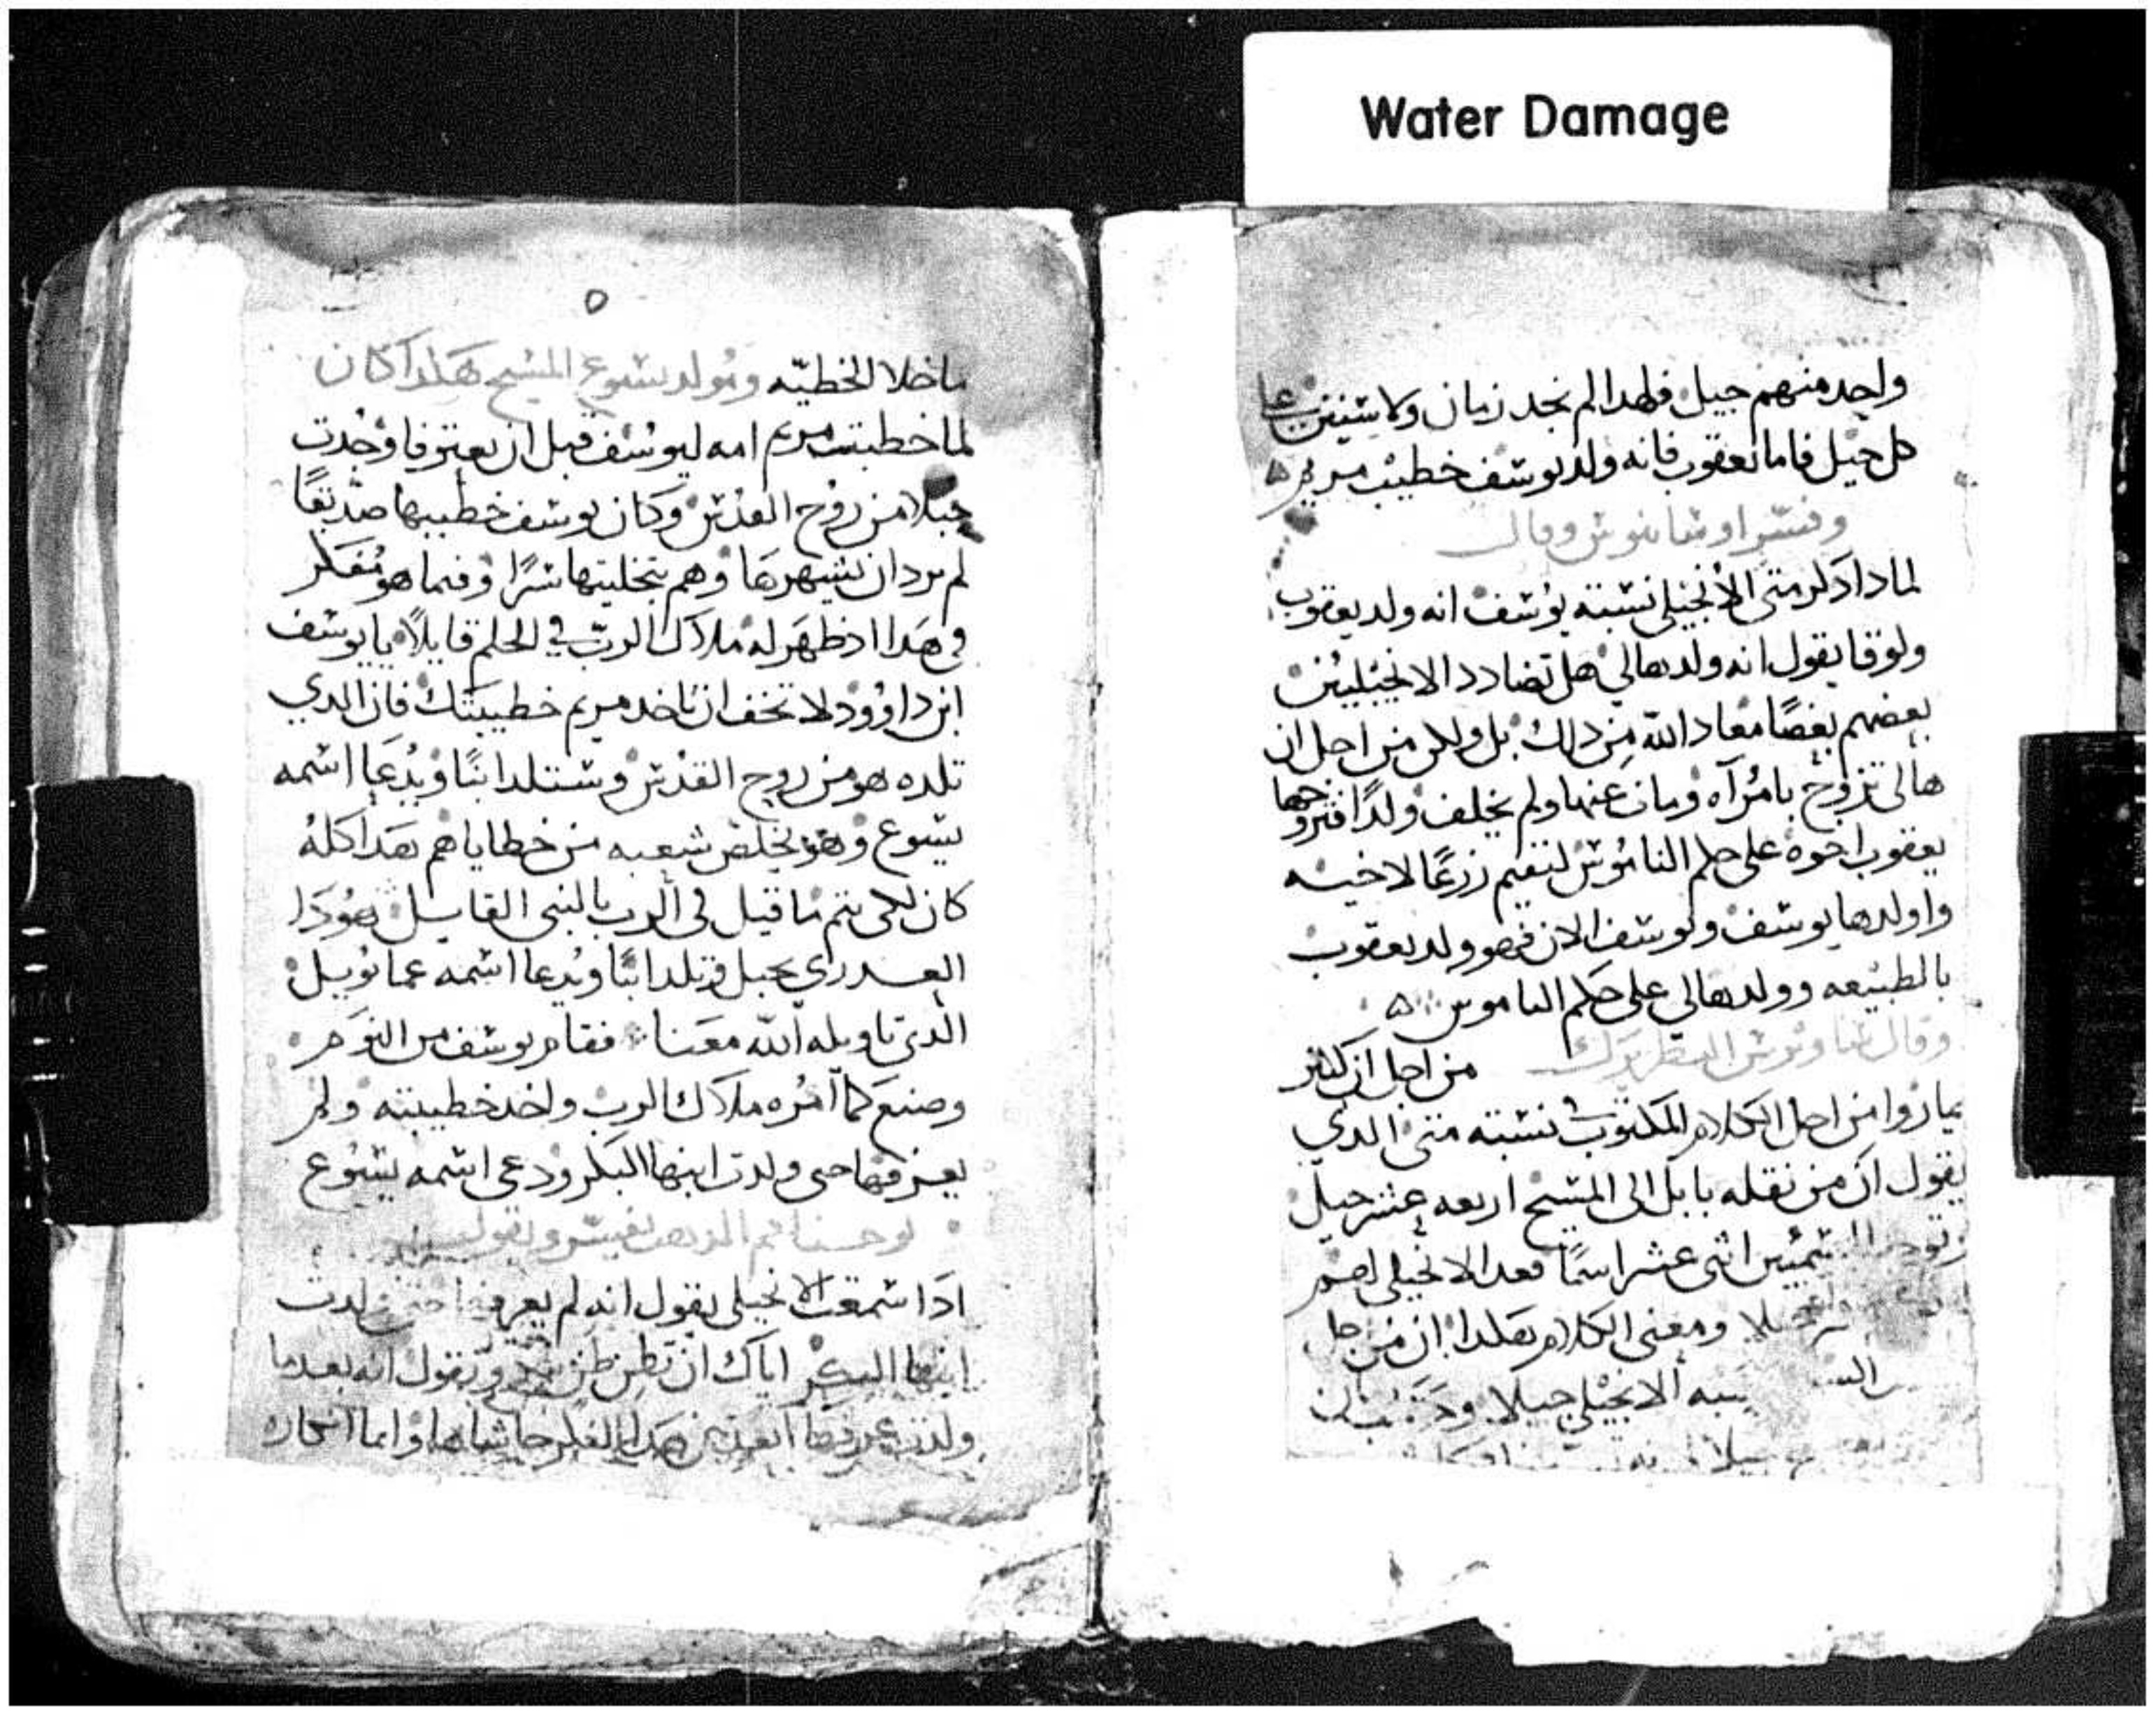 Water Damage
واحد منهم جيل فلهدا لم نجد زمان ولا سنين
كل جيل فاما يعقوب فانه ولد يوسف خطيب مريم
وفسر اوسانيوس وقال
لمادا دكر متى الانجيلي نسبته يوسف انه ولد يعقوب
ولوقا يقول انه ولد هالي هل تضادد الانجيليين
بعضهم بعضًا معاد الله من دلك بل ولكن من اجل ان
هالي تزوج بامرآه ومات عنها ولم يخلف ولدًا فتزوجها
يعقوب اخوه على حكم الناموس لتقيم زرعًا لاخيه
واولدها يوسف ويوسف الان فهو ولد يعقوب
بالطبيعه وولد هالي على حكم الناموس
وقال ساويرس البطريرك من اجل ان كثير
يمارُوا من اجل الكلام المكتوب في نسبته متى الدي
يقول ان من نقله بابل الى المسيح اربعه عشر جيل
اثنى عشر اسمًا فعد الانجيلي
ومعنى الكلام هكدا ان من
الانجيلي جيلا
٥
ما خلا الخطيّه ومولد يسوع المسيح هكدا كان
لما خطبت مريم امه ليوسف قبل ان يعترفا وُجدت
حبلا من روح القدس وكان يوسف خطيبها صديقًا
لم يرد ان يشهرها وهم بتخليتها سرًا وفيما هو مُفكر
في هدا اد ظهر له ملاك الربّ في الحلم قايلاً يا يوسف
ابن داوود لا تخف ان تاخد مريم خطيبتك فان الدي
تلده هو من روح القدس وستلد ابنًا ويُدعا اسمه
يسوع وهو يخلص شعبه من خطاياهم هدا كله
كان لكي يتم ما قيل لي الرب بالنبي القايل هودا
العدري تحبل وتلد ابنًا ويُدعا اسمه عمانوييل
الدي تاويله الله معنا فقام يوسف من النوم
وصنع كما آمره ملاك الرب واخد خطيبته ولم
يعرفها حتى ولدت ابنها البكر ودعى اسمه يسوع
يوحنا فم الدهب يفسر ويقول
ادا سمعت الانجيلي يقول انه لم يعرفها حتى ولدت
ابنها البكر اياك ان تظن ظن وتقول انه بعدما
ولدت عرفها هدا الفكر حاشاها وانما